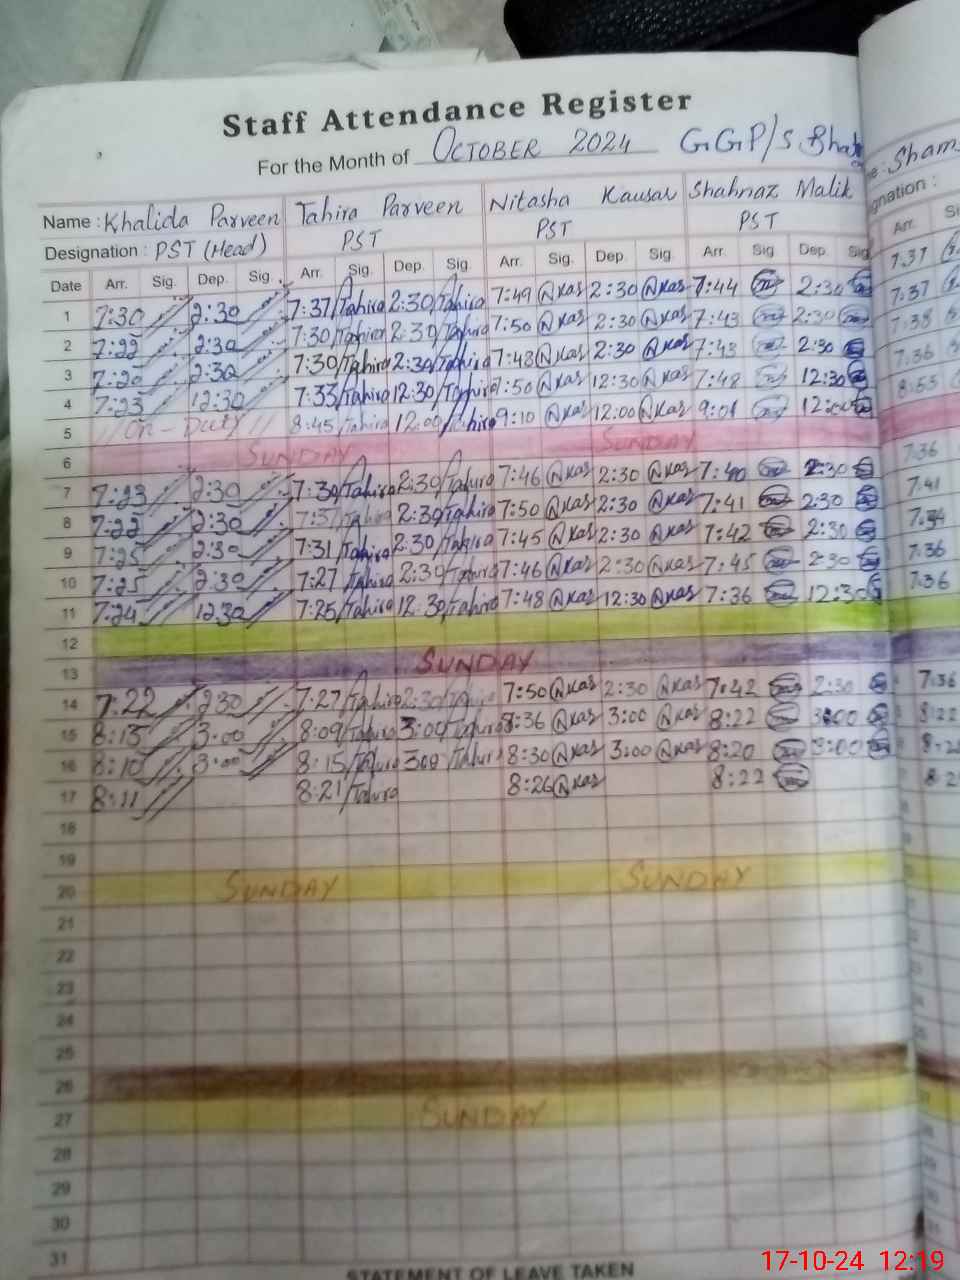 Staff Attendance Register
For the Month of OCTOBER 2024 GGP/S
Name : Khalida Parveen Tahira Parveen Nitasha Kausar Shahnaz Malik
Designation : PST (Head) PST PST PST
Date Arr. Sig. Dep. Sig. Arr. Sig. Dep. Sig. Arr. Sig. Dep. Sig. Arr. Sig. Dep. Sig. Arr.
1 7:30 2:30 7:37 Tahira 2:30 Tahira 7:49 NKas 2:30 NKas 7:44 2:30 7.37
2 7:22 2:30 7:30 Tahira 2:30 Tahira 7:50 NKas 2:30 NKas 7:43 2:30 7.37
3 2:30 7:30 Tahira 2:30 Tahira 7:48 NKas 2:30 NKas 7:43 2:30 7.38
4 7:23 12:30 7:33 Tahira 12:30 Tahira 7:50 NKas 12:30 NKas 7:48 12:30 7.36
5 On - Duty 8:45 Tahira 12:00 Tahira 9:10 NKas 12:00 NKas 9:01 12:00 8:55
6 SUNDAY SUNDAY
7 7:23 2:30 7:30 Tahira 2:30 Tahira 7:46 NKas 2:30 NKas 7:40 2:30 7.36
8 7:22 2:30 7:37 Tahira 2:30 Tahira 7:50 NKas 2:30 NKas 7:41 2:30 7.41
9 7:25 2:30 7:31 Tahira 2:30 Tahira 7:45 NKas 2:30 NKas 7:42 2:30 7.34
10 7:25 2:30 7:27 Tahira 2:30 Tahira 7:46 NKas 2:30 NKas 7:45 2:30 7.36
11 7:24 12:30 7:25 Tahira 12:30 Tahira 7:48 NKas 12:30 NKas 7:36 12:30 7.36
12
13 SUNDAY
14 7:22 2:30 7:27 Tahira 2:30 Tahira 7:50 NKas 2:30 NKas 7:42 2:30 7.36
15 8:13 3:00 8:09 Tahira 3:00 Tahira 8:36 NKas 3:00 NKas 8:22 3:00 8:22
16 8:10 3:00 8:15 Tahira 300 Tahira 8:30 NKas 3:00 NKas 8:20 3:00
17 8:11 8:21 Tahira 8:26 NKas 8:22
18
19
20 SUNDAY SUNDAY
21
22
23
24
25
26
27 SUNDAY
28
29
30
31
STATEMENT OF LEAVE TAKEN
17-10-24 12:19